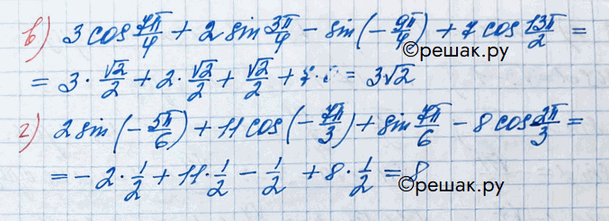 в) 3 cos 7π/4 + 2 sin 3π/4 - sin(-9π/4) + 7 cos 13π/2 =
©решак.ру
= 3 · √2/2 + 2 · √2/2 + √2/2 + 7 · = 3√2
г) 2 sin(-5π/6) + 11 cos(-7π/3) + sin 7π/6 - 8 cos 2π/3 =
= -2 · 1/2 + 11 · 1/2 - 1/2 + 8 · 1/2 = 8
©решак.ру